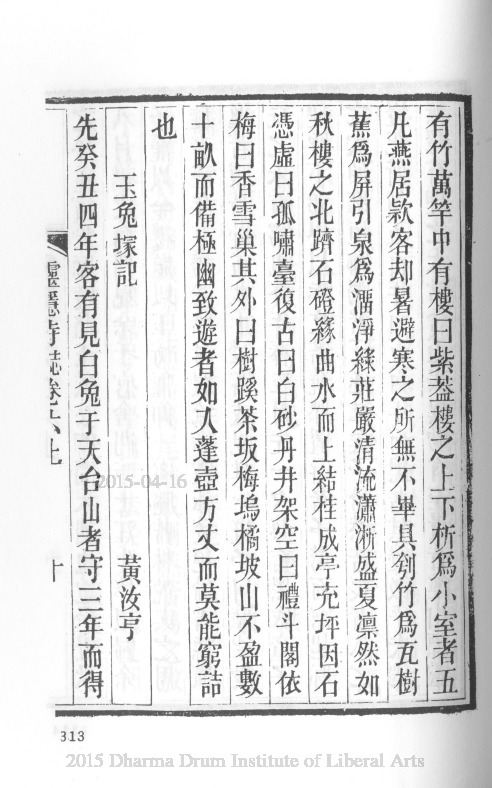 有竹萬竿中有樓曰紫葢樓之上下析爲小室者五
凡燕居款客却暑避寒之所無不畢具刳竹爲瓦樹
蕉爲屏引泉爲溜淨綠莊嚴清流瀟淅盛夏凛然如
秋樓之北躋石磴緣曲水而上結桂成亭充坪因石
憑虛曰孤嘯臺復古曰白砂丹井架空曰禮斗閣依
梅曰香雪巢其外曰樹蹊茶坂梅塢橘坡山不盈數
十畝而備極幽致遊者如入蓬壺方丈而莫能窮詰
也
玉兔塚記 黃汝亨
先癸丑四年客有見白兔于天台山者守三年而得
靈隱寺誌卷六七 十
2015-04-16
313
2015 Dharma Drum Institute of Liberal Arts